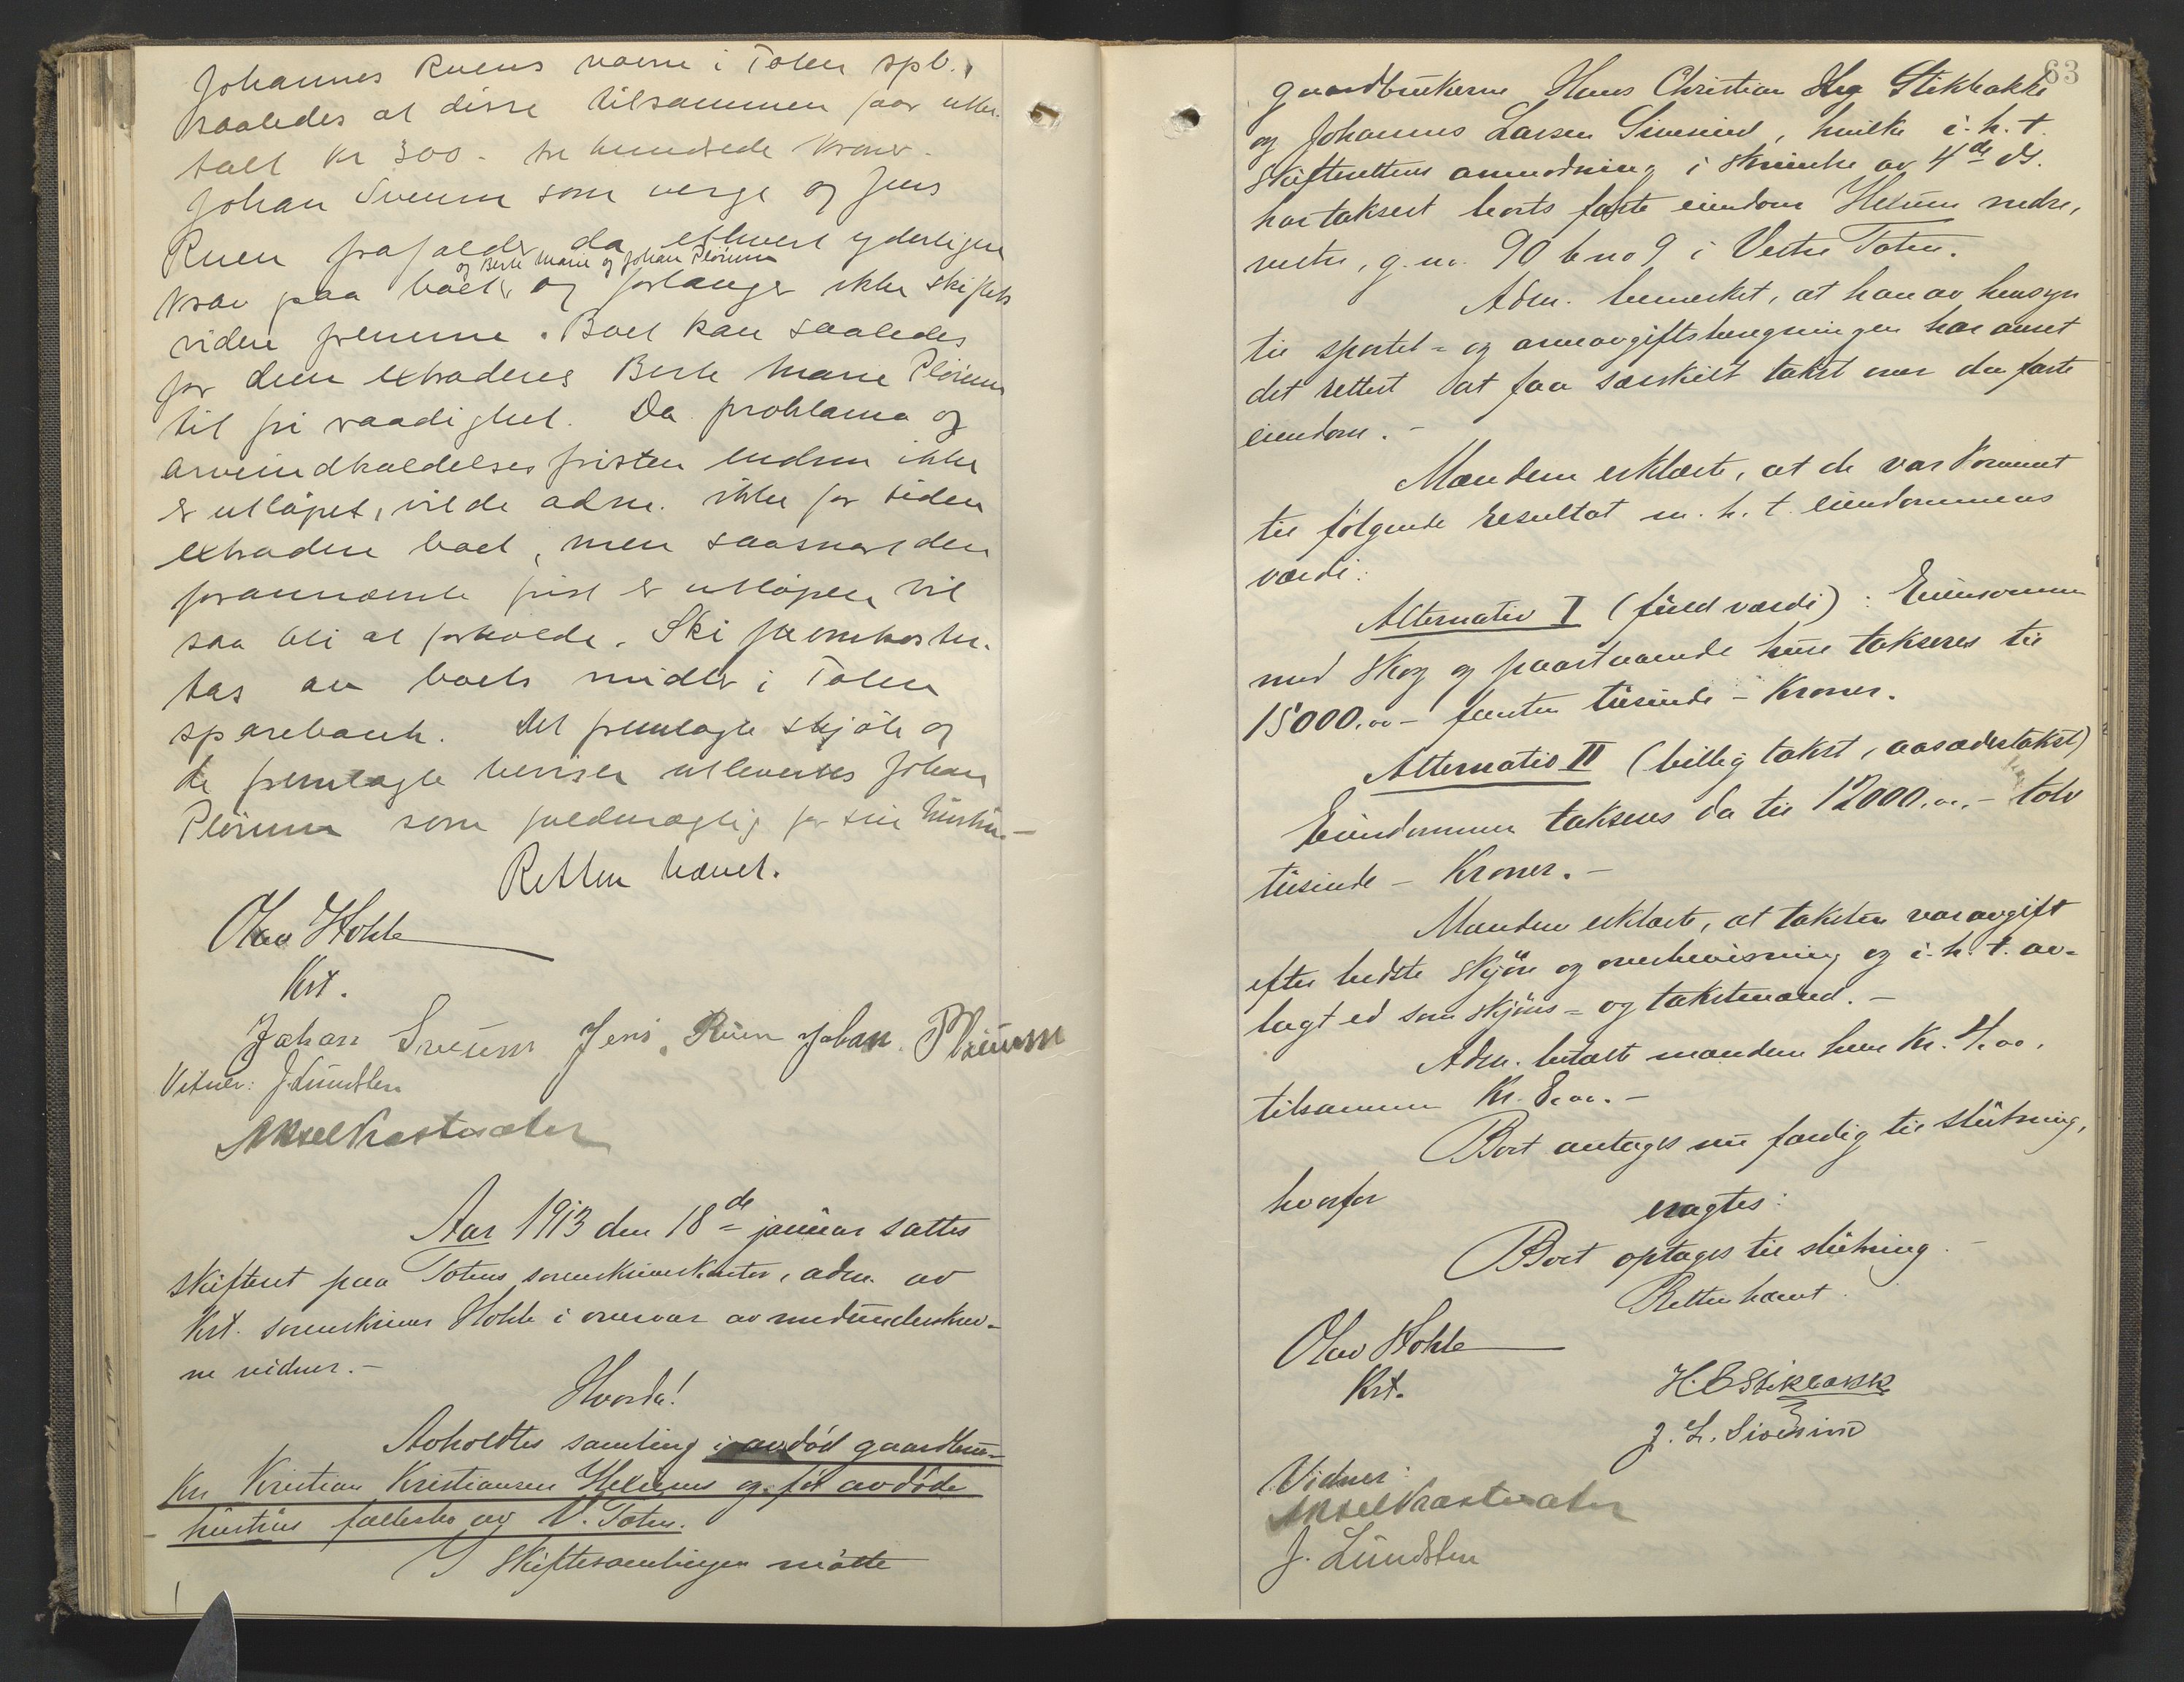 Johannes Ruens navn i Toten spb.,
saaledes at disse tilsammen faar utbe-
talt kr 300. tre hundrede kroner.
Johan Sveum som verge og Jens
Ruen frafalder da ethvert yderligere
og Berte Marie og Johan Pløium
krav paa boet og forlanger ikke skiftets
videre fremme. Boet kan saaledes
for dem extraderes Berte Marie Pløium
til fri raadighet. Da proklama og
arveindkaldelsesfristen endnu ikke
er utløpet, vilde adm. ikke for tiden
extradere boet, men saasnart den
forannævnte frist er utløpen vil
saa bli at forholde. Skifteomkostn.
tas av boets midler i Toten
sparebank. Det fremlagte skjøte og
de fremlagte beviser utleveres Johan
Pløium som fuldmægtig for sin hustru.—
Retten hævet.
Olav Hohle
Kst.
Johan Sveum Jens Ruen Johan Pløium
Vidner: J. Lundsten
Aksel Krastesæter
Aar 1913 den 18de januar sattes
skifteret paa Totens sorenskriverkontor, adm. av
Kst. sorenskriver Hohle i overvær av medunderskrev-
ne vidner.-
Hvorda!
Avholdtes samling i avdød gaardbru-
ker Kristian Kristiansen Hexums og før avdøde
hustrus fællesbo av V. Toten.
I skiftesamlingen møtte
63
gaardbrukerne Hans Christian Stikbakke
og Johannes Larsen Sivesind, hvilke i.h.t.
skifterettens anmodning i skrivelse av 4de ds.
har taksert boets faste eiendom Hexum nedre,
vestre, g.no. 90 b no 9 i Vestre Toten.
Adm. bemerket, at han av hensyn
til sportel- og arveavgiftsberegningen har anset
det rettest at faa særskilt takst over den faste
eiendom.-
Mændene erklærte, at de var kommet
til følgende resultat m.h.t. eiendommens
værdi:
Alternativ I (fuld værdi): Eiendommen
med skog og paastaaende huse takseres til
15000.00- femten tusinde - Kroner.
Alternativ II (billig takst, aasædestakst)
Eiendommen takseres da til 12000.00.- tolv
tusinde - Kroner.-
Mændene erklærte, at taksten var avgit
efter bedste skjøn og overbevisning og i.h.t. av-
lagt ed som skjøns- og takstmænd.-
Adm. betalte mændene hver Kr. 4.00.
tilsammen Kr. 8.00.-
Boet antages nu færdig til slutning,
hvorfor
eragtes:
Boet optages til slutning.-
Retten hævet.
Olav Hohle
Kst.
H.C Stikbakk
J. L. Sivesind
Vidner:
Aksel Krastesæter
J. Lundsten